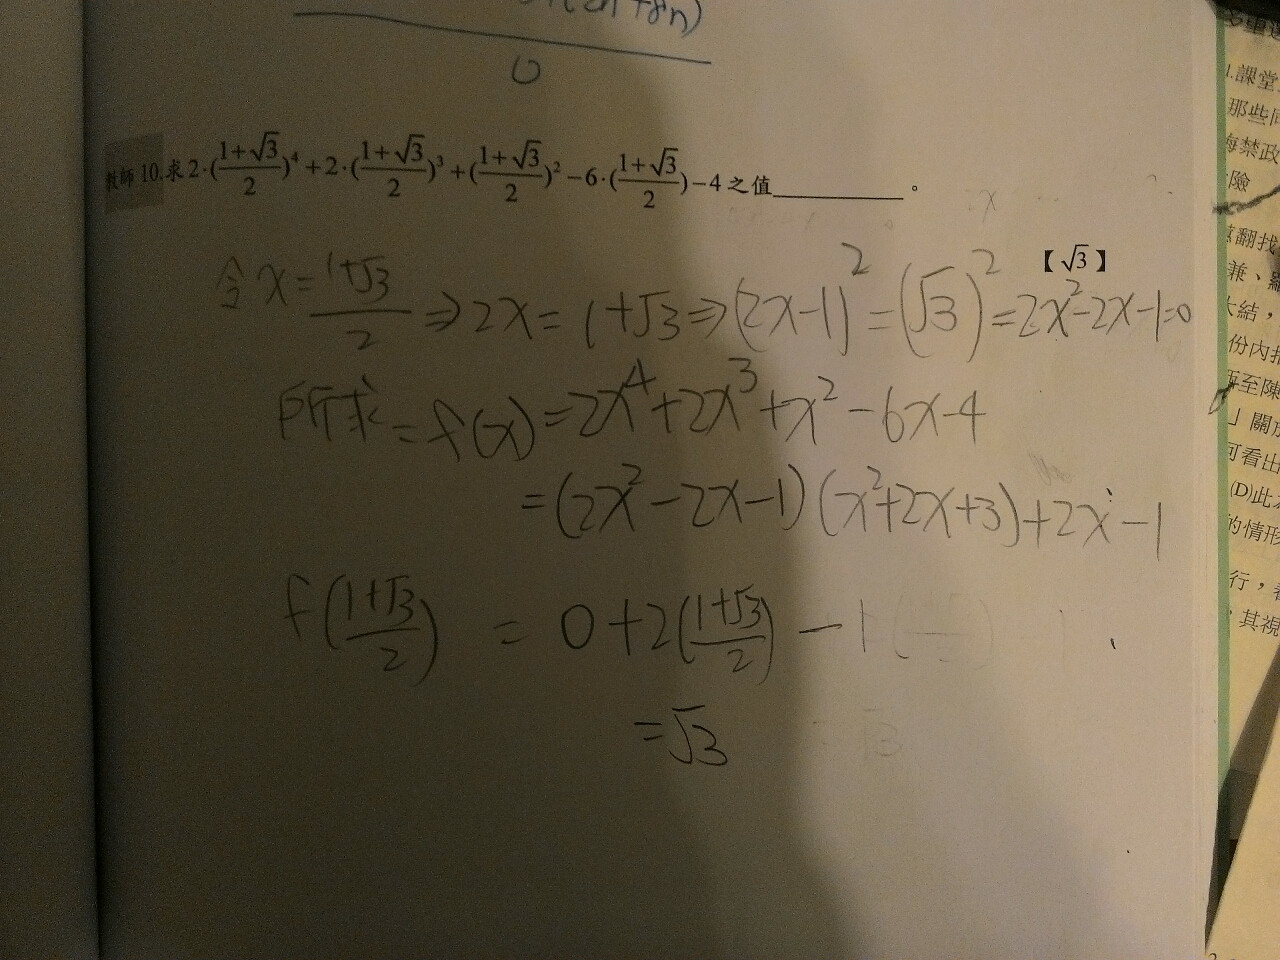 (2n+8n)
0
教師 10.求 2·(\frac{1+\sqrt{3}}{2})^4+2·(\frac{1+\sqrt{3}}{2})^3+(\frac{1+\sqrt{3}}{2})^2-6·(\frac{1+\sqrt{3}}{2})-4 之值________。
【√3】
令 x=\frac{1+\sqrt{3}}{2} ⇒ 2x=1+√3 ⇒ (2x-1)^2=(√3)^2=2x^2-2x-1=0
所求=f(x)=2x^4+2x^3+x^2-6x-4
=(2x^2-2x-1)(x^2+2x+3)+2x-1
f(\frac{1+\sqrt{3}}{2}) = 0+2(\frac{1+\sqrt{3}}{2})-1
=√3
1.課堂
那些同
海禁政
險
翻找
兼、
大結，
份內
至陳
」關於
可看出
(D)此
的情形
行，
，其視